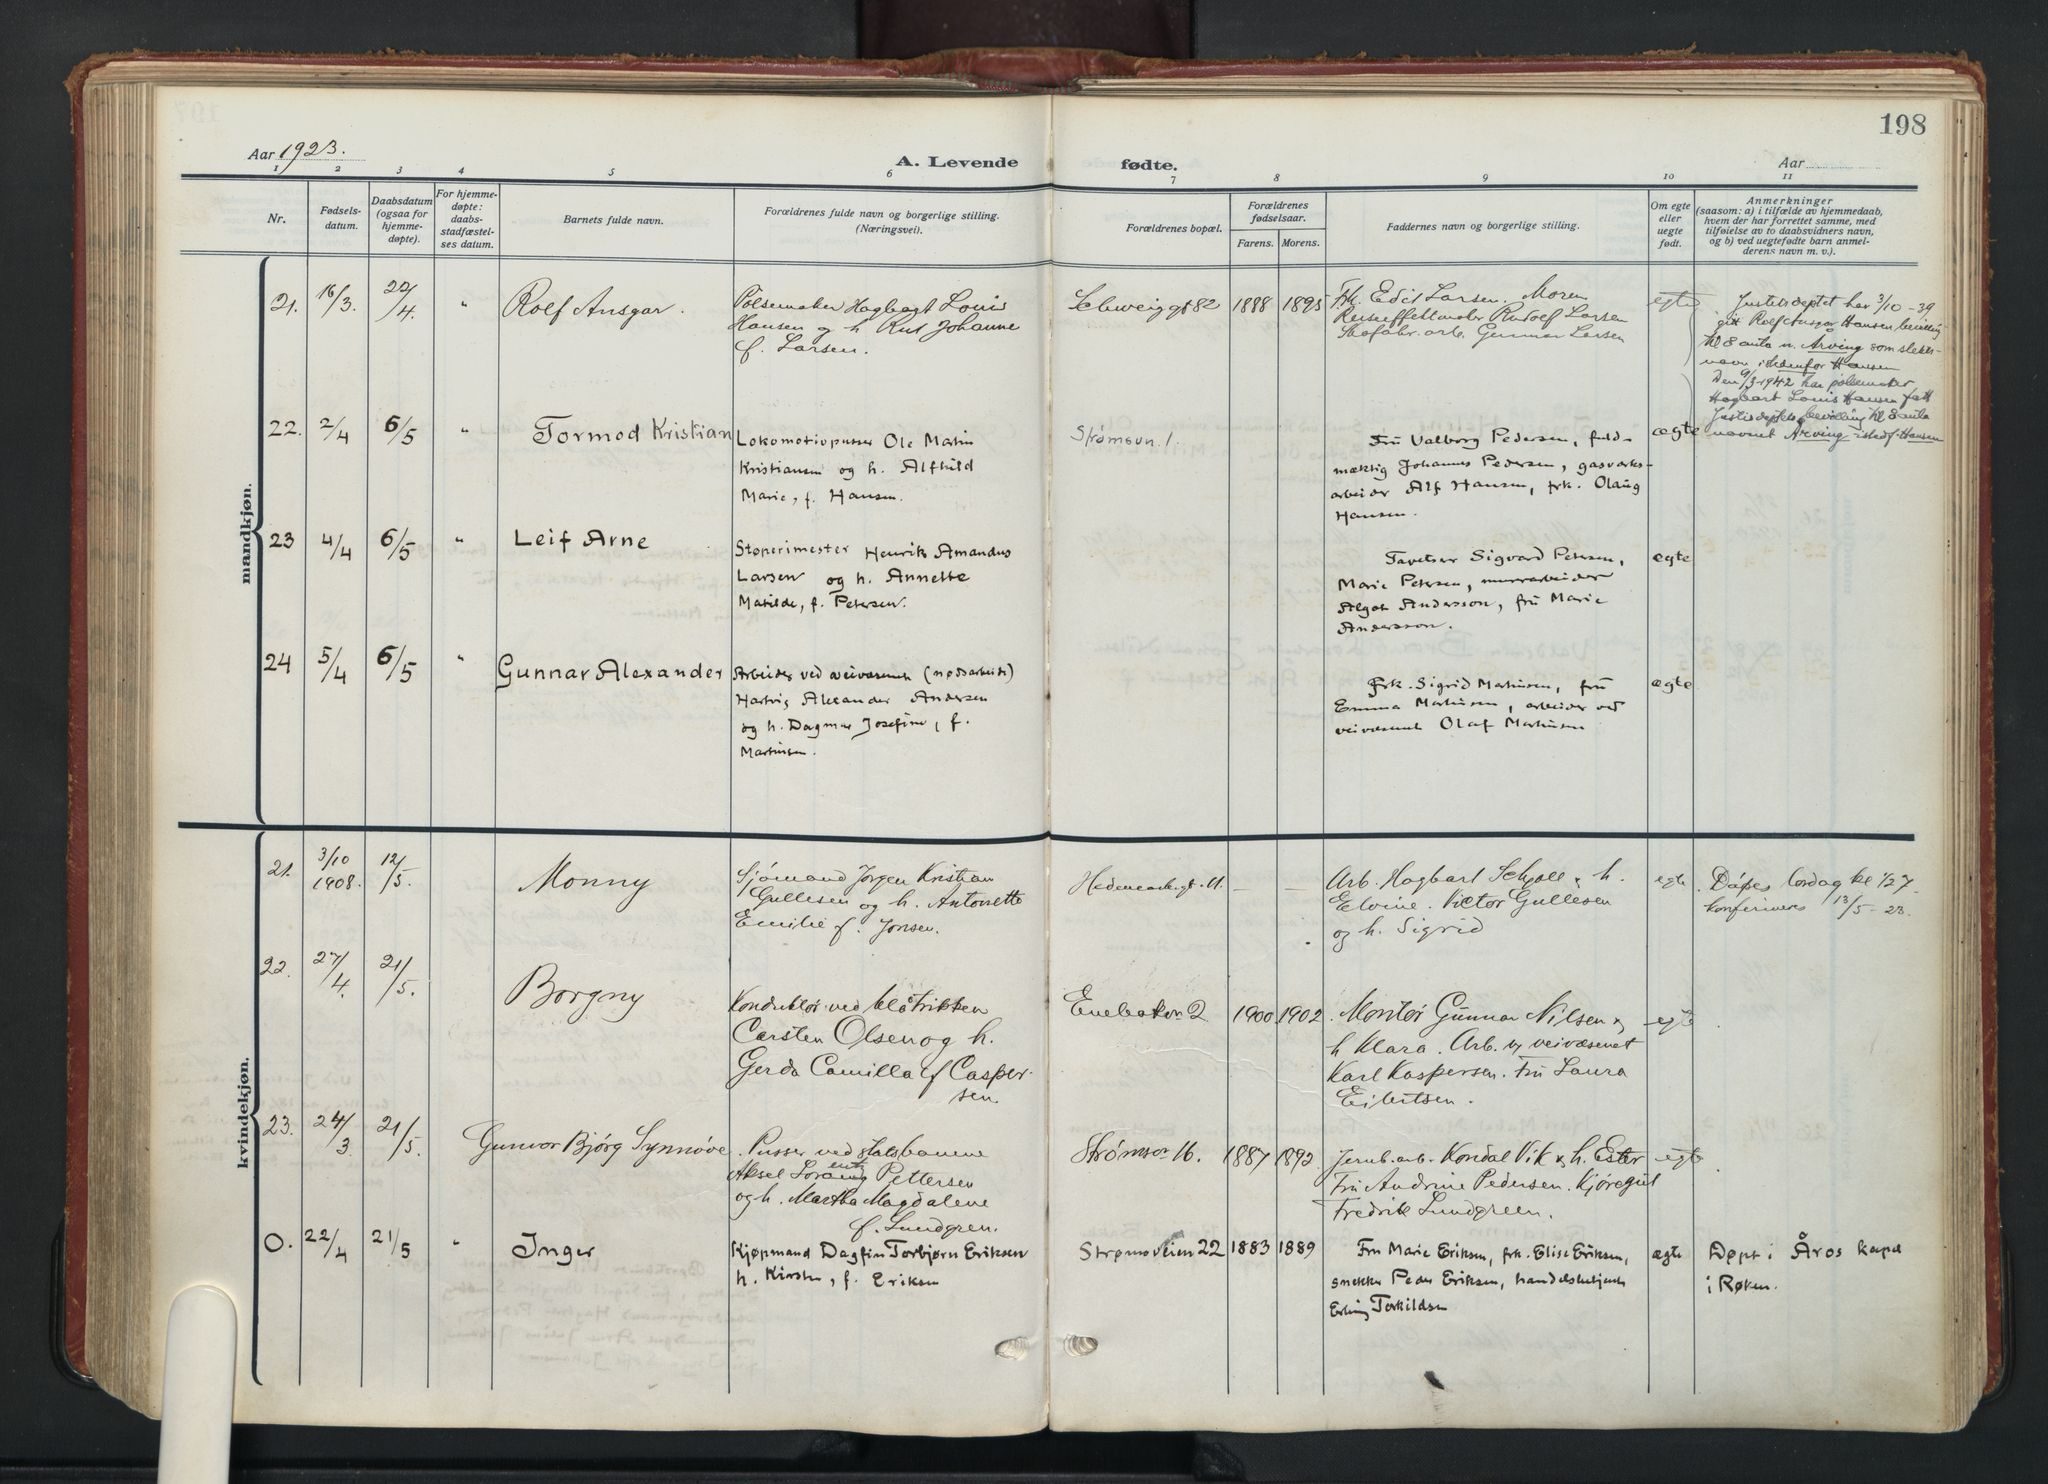 198
Aar 1923.
A. Levende
fødte.
Aar
1 2 3 4 5 6 7 8 9 10 11
Nr.
Fødsels-
datum.
Daabsdatum
(ogsaa for
hjemme-
døpte).
For hjemme-
døpte:
daabs-
stadfæstel-
ses datum.
Barnets fulde navn.
Forældrenes fulde navn og borgerlige stilling.
(Næringsvei).
Forældrenes bopæl.
Forældrenes
fødselsaar.
Farens. Morens.
Faddernes navn og borgerlige stilling.
Om egte
eller
uegte
født.
Anmerkninger
(saasom: a) i tilfælde av hjemmedaab,
hvem der har forrettet samme, med
tilføielse av to daabsvidners navn,
og b) ved uegtefødte barn anmel-
derens navn m. v.).
mandkjøn.
21. 16/3. 22/4. " Rolf Ansgar.
Pölsemaker Hagbart Louis
Hansen og h. Rut Johanne
f. Larsen.
Schweigsgt 82 1888 1895
Frk. Edit Larsen. Moren
Reiseeffektmakr Rudolf Larsen
Skofabr. arb. Gunnar Larsen
egte
Justisdeptet har 3/10-39
gitt Rolf Ansgar Hansen bevilling
til å anta n. Arving som slekts-
navn istedenfor Hansen
Den 9/3-1942 har pölsemaker
Hagbart Louis Hansen fått
Justisdeptets bevilling til å anta
navnet Arving istedf. Hansen
22. 2/4 6/5 " Tormod Kristian
Lokomotivpusser Ole Martin
Kristiansen og h. Alfhild
Marie, f. Hansen.
Strømsvn. 1.
Fru Valborg Pedersen, fuld-
mæktig Johannes Pedersen, gasverks-
arbeider Alf Hansen, frk. Olaug
Hansen.
ægte
23 4/4 6/5 " Leif Arne
Støperimester Henrik Amandus
Larsen og h. Annette
Matilde, f. Petersen.
Sigvard Petersen,
Marie Petersen, murarbeider
Algot Andersson, fru Marie
Andersson.
ægte
24 5/4 6/5 " Gunnar Alexander
Arbeider ved veivæsenet (nødsarbeide)
Hartvig Alexander Andersen
og h. Dagmar Josefine, f.
Martinsen.
Frk. Sigrid Martinsen, fru
Emma Martinsen, arbeider ved
veivæsenet Olaf Martinsen
ægte
kvindekjøn.
21. 3/10 1908. 12/5. Monny
Sjømand Jørgen Kristian
Gullesen og h. Antonette
Emilie f. Jonsen.
Hedemarksgt. 11. — —
Arb. Hagbart Schjoll & h.
Elvine. Victor Gullesen
og h. Sigrid
egte
Döpes lördag kl 1/2 7.
konfirmeres 13/5-23.
22. 27/4. 21/5. Borgny
Konduktör ved blåtrikken
Carsten Olsen og h.
Gerda Camilla f Casper-
sen
Enebakvn 2 1900. 1902
Montör Gunnar Nilsen &
h Klara. Arb. v veivæsenet
Karl Kaspersen. Fru Laura
Eilertsen.
egte
23. 24/3. 21/5. Gunvor Bjørg Synnøve
Pusser ved statsbanene
Aksel Lorang Pettersen
og h. Martha Magdalene
f. Lundgren.
Strømsvn 16. 1887 1892.
Jernb. arb. Kondal Vik & h. Ester
Fru Andrine Pedersen. Kjøregut
Fredrik Lundgreen.
egte
O. 22/4 21/5 " Inger
Kjøpmand Dagfin Torbjørn Eriksen
h. Kirsten, f. Eriksen
Strømsveien 22 1883 1889
Fru Marie Eriksen, frk. Elise Eriksen,
snekker Peder Eriksen, handelsbetjent
Erling Torkildsen
ægte
Døpt i Åros kapel
i Røken.